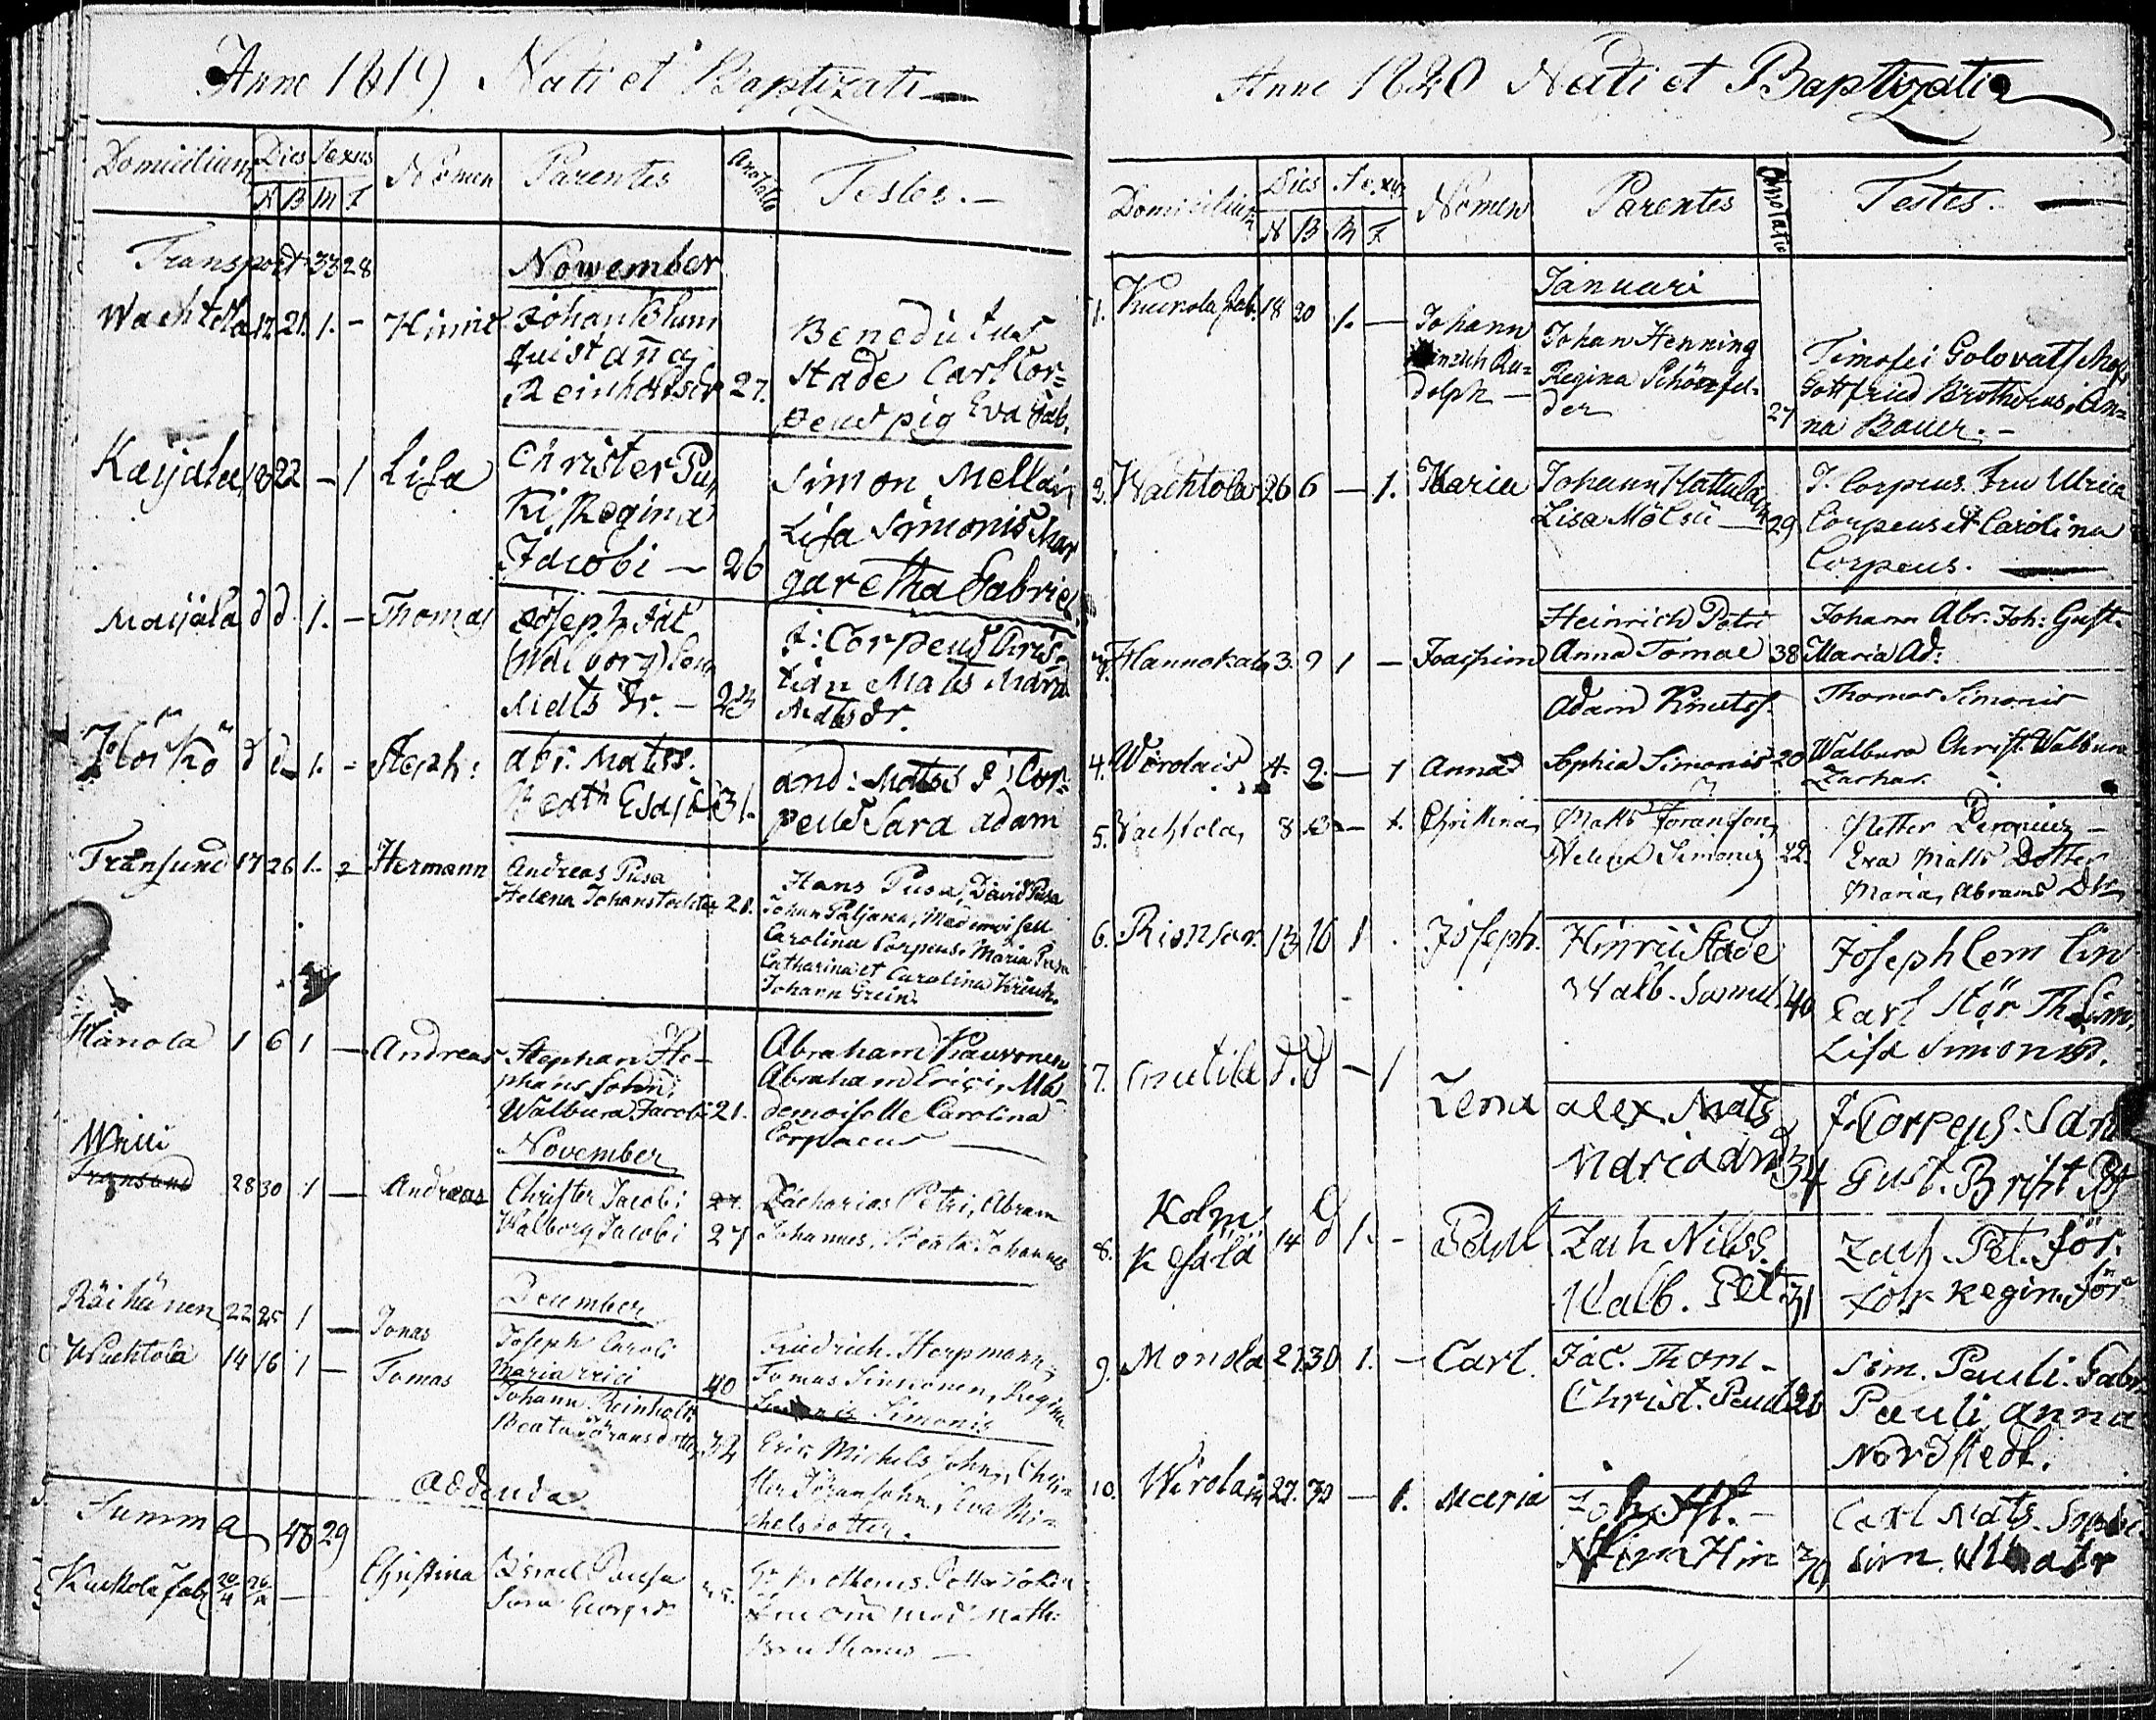 Anno 1819 Nati et Baptizati
Domicilium Dies Sexus Nomen Parentes Annotatio Testes.
N B M F
Transport 33 28 November
Wachtola 12 21. 1. - Hinric Johan Blum
quist Anna
Reinholtsdr 27.
Benedictus
Stade Carl Cor=
peus pig Eva Gab.
Kaijala 18 22 - 1 Lisa Christer Pu
ki, Regina
Jacobi - 26
Simon Mellain
Lisa Simonis Mar
garetha Gabriel
Maijala d d. 1. - Thomas Joseph Jac
(Walborg)
Matts dr. - 23
J: Corpeus Chris=
tian Mats Maria
Matts dr.
Hörkö d d 1. - Steph: Abr. Matss.
Beath Esaiæ 31.
And: Matss J: Cor=
peus Sara Adam
Transund 17 26 1. - Hermann Andreas Pusa
Helena Johanstochter 28.
Hans Pusa, David Pusa
Johan Paljana, Mademoisell
Carolina Corpeus. Maria Pusa
Catharina et Carolina
Johann Grein.
Hanola 1 6 1 - Andreas Stephan Ste-
phans Sohn;
Walbura Jacobi 21.
Abraham Kauronen
Abraham Erici, Ma-
demoiselle Carolina
Corpaeus
November
Transund 28 30 1 - Andreas Christer Jacobi
Walborg Jacobi 27
Zacharias Petri, Abram
Johannes, Beata Johannes
December
Räihänen 22 25 1 - Jonas Joseph Caroli
Maria Erici 40
Friedrich Horpmann,
Tomas Simonen, Regina
Simonis
Wachtola 14 16 1 - Tomas Johann Reinholt
Beata Göransdotter 32
Eric Michels Sohn, Chris
ter Göransohn, Eva Mi
chelsdotter.
Addenda
Summa 43 29
Kuckola fab 20/11 26/11 - Christina Israel Pausa
Sara Georgsd.
Brotherus
Simon Mad. Math:
Brotherus
Anno 1820 Nati et Baptizati
Domicilium Dies Sexus Nomen Parentes Annotatio Testes.
N B M F
Januari
1. Kuckola fab. 18 20 1. - Johann
Hinrich Ru=
dolph -
Johan Henning
Regina Schönfel-
der 27
Timofei Golovatschoff
Gottfried Brotherus, An=
na Bauer. -
2. Wachtola 26 6 - 1. Maria Johann Hattulain
Lisa Mölsü - 29
J. Corpeus. Fru Ulrica
Corpeus et Carolina
Corpeus.
3. Hannokala 3. 9 1 - Joachim Heinrich Petri
Anna Tomae 38
Johann Abr. Joh: Gust.
Maria Ad:
4. Wirolais 4. 9. - 1 Anna Adam Knutss.
Sophia Simonis 20
Thomas Simonis
Walbura Christ. Walbura
Zachar.
5. Vachtola, 8 - 1. Christina, Matts Göranson,
Helena Simonis 22.
Petter
Eva Matts Dotter
Maria, Abrams Dtr
6. Rionsar. 13 16 1 . Joseph. Hinric Stade
Walb. Samuel 40
Joseph Clem
Carl Stör Th. Sim,
Lisa Simonis.
7. Cnutila d. d - 1 Lena Alex. Mats
Maria And 34
J. Corpeus.
Gust. Brist
8. Kolm
Kesälä 14 d 1. - Paul Zach Nilss.
Walb. Pet 31
Zach. Pet. Jör.
Regin. Jör
9. Monola 27 30 1. - Carl. Jac. Thom-
Christ. Paul 26
Sim. Pauli. Gabr
Pauli Anna
Nordstedt.
10. Wirolain 27. 30 - 1. Maria
Hin
Carl Mats.
Sim.